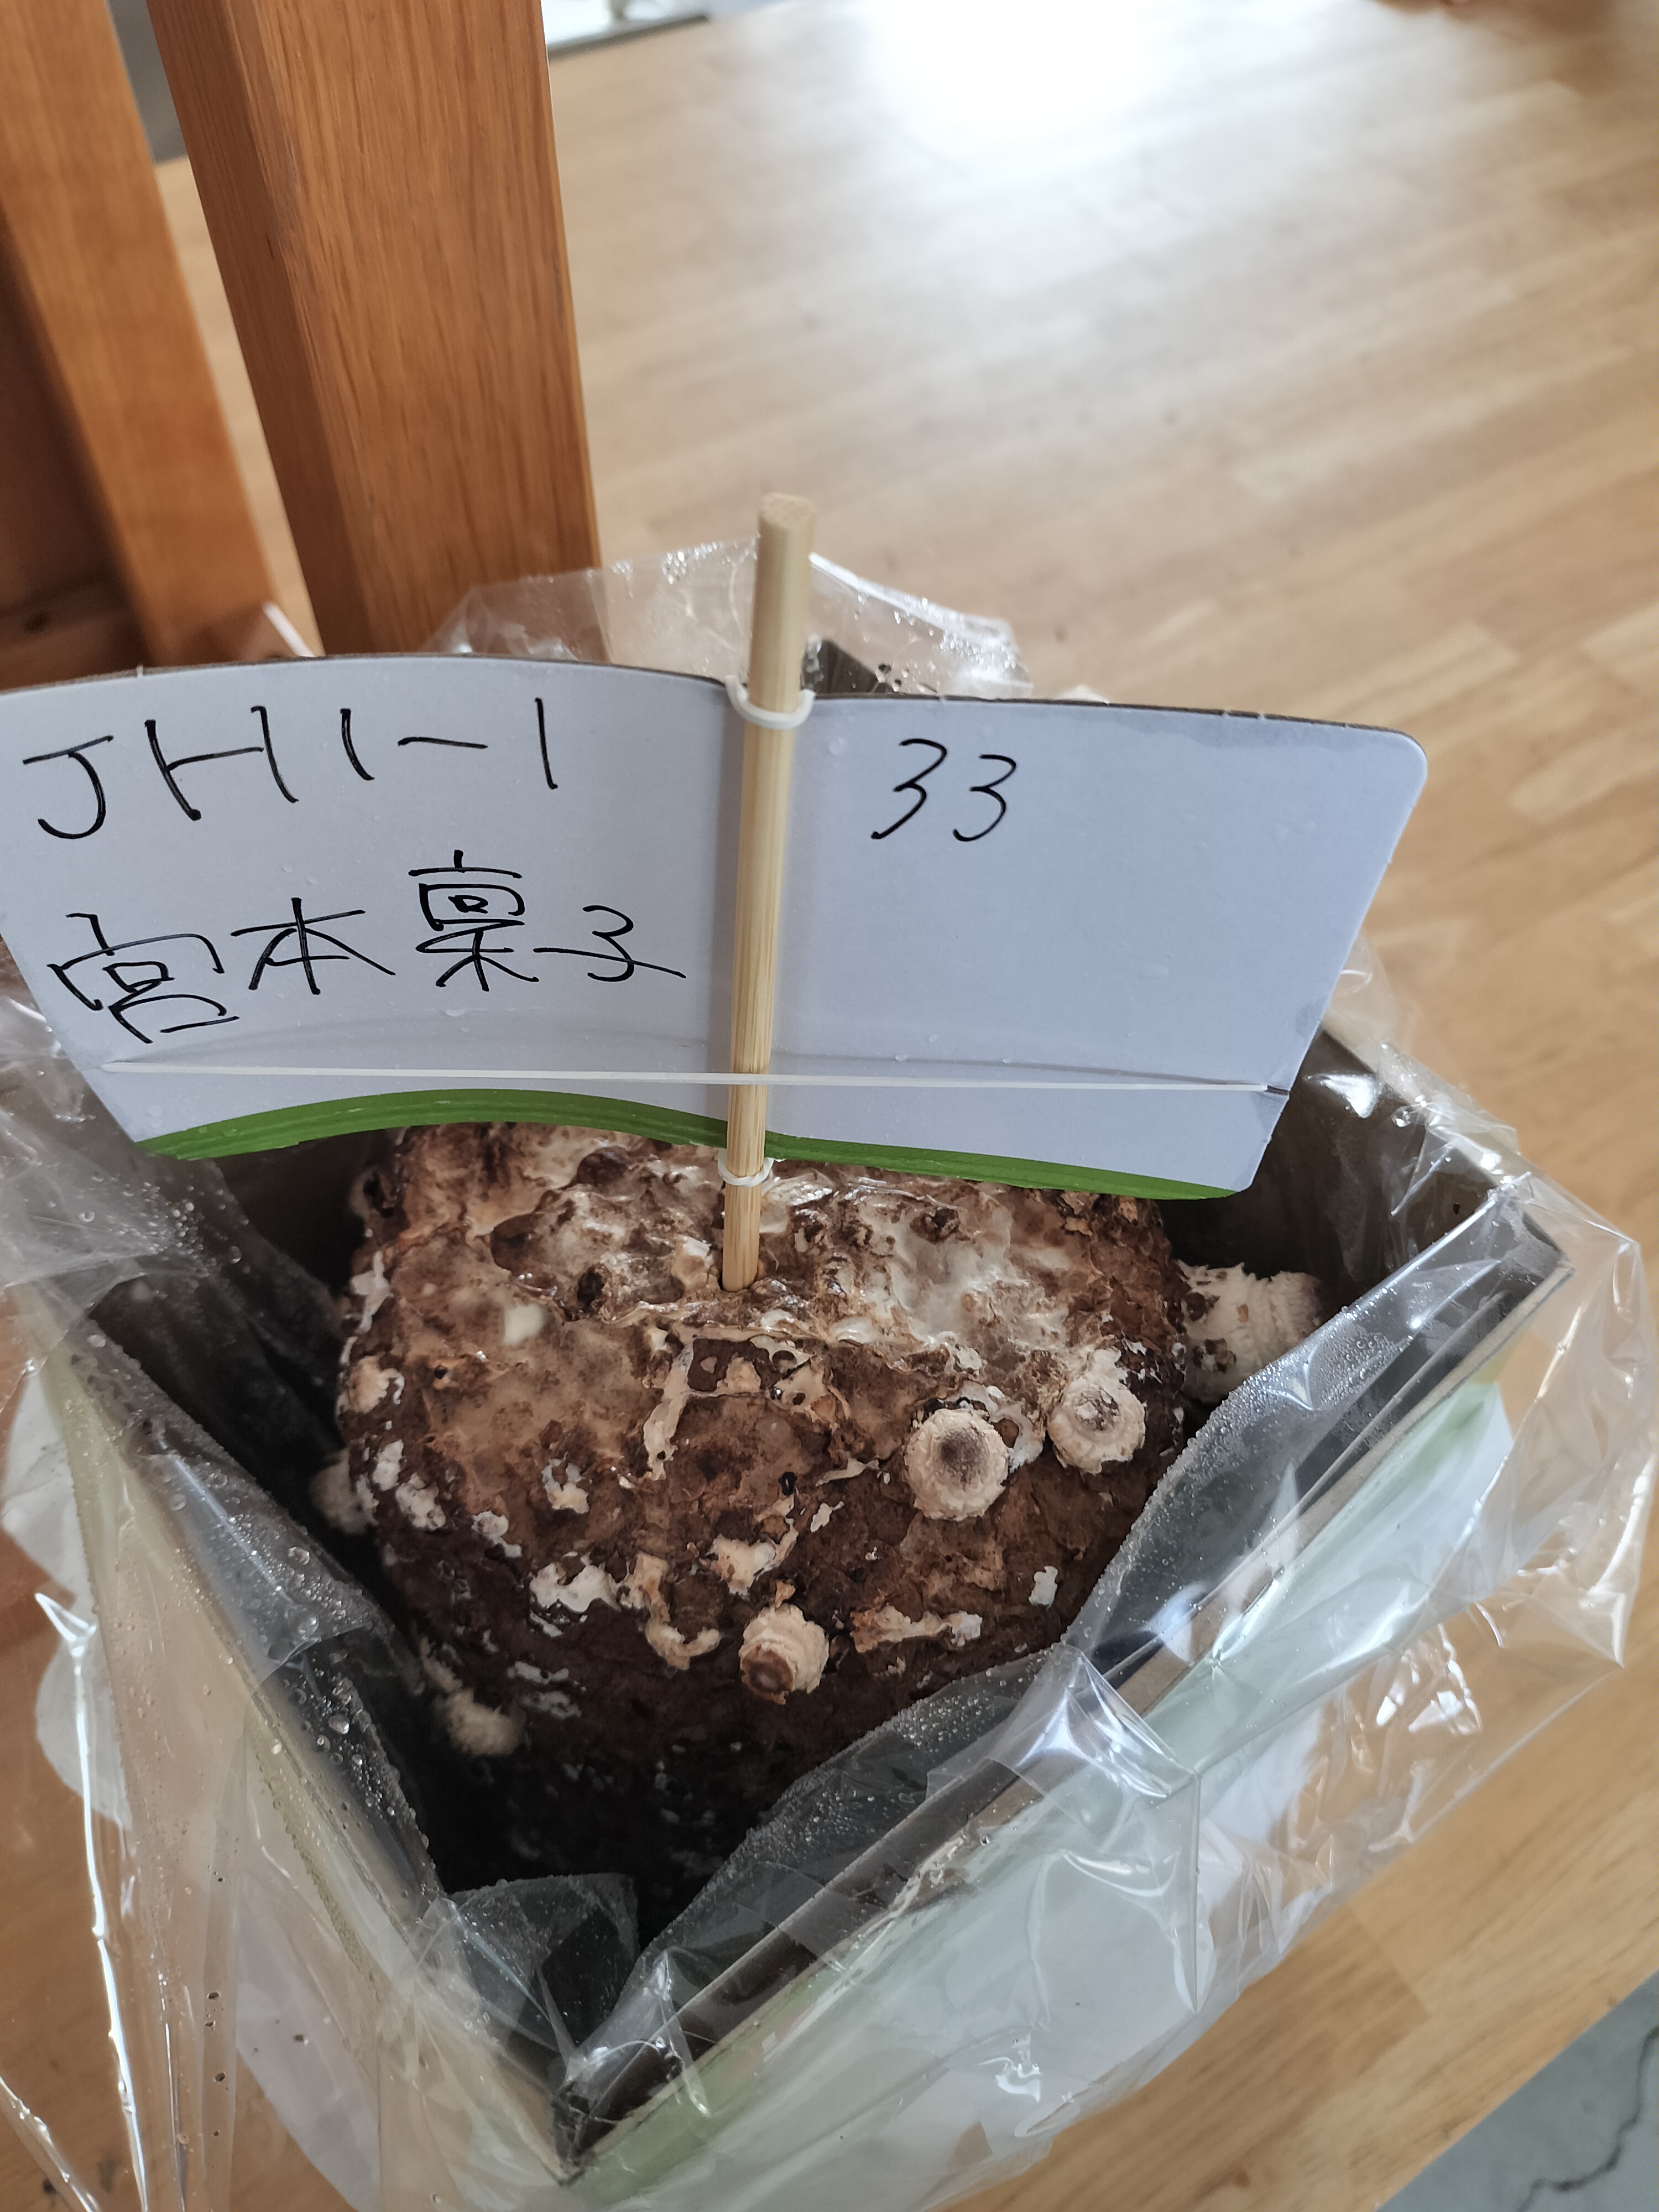 JH1-1
33
宮本稟子